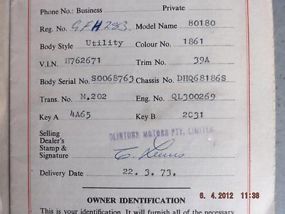 Phone No.: Business Private
Reg. No. GFH 293 Model Name 80180
Body Style Utility Colour No. 1861
V.I.N. H762671 Trim No. 39A
Body Serial No. S0068763 Chassis No. DHQ68186S
Trans. No. M.202 Eng. No. QL300269
Key A 4A65 Key B 2C31
Selling
Dealer's MOTORS PTY. LIMITED
Stamp &
Signature
Delivery Date 22. 3. 73.
OWNER IDENTIFICATION
This is your identification. It will furnish all of the necessary
6. 4.2012 11:38